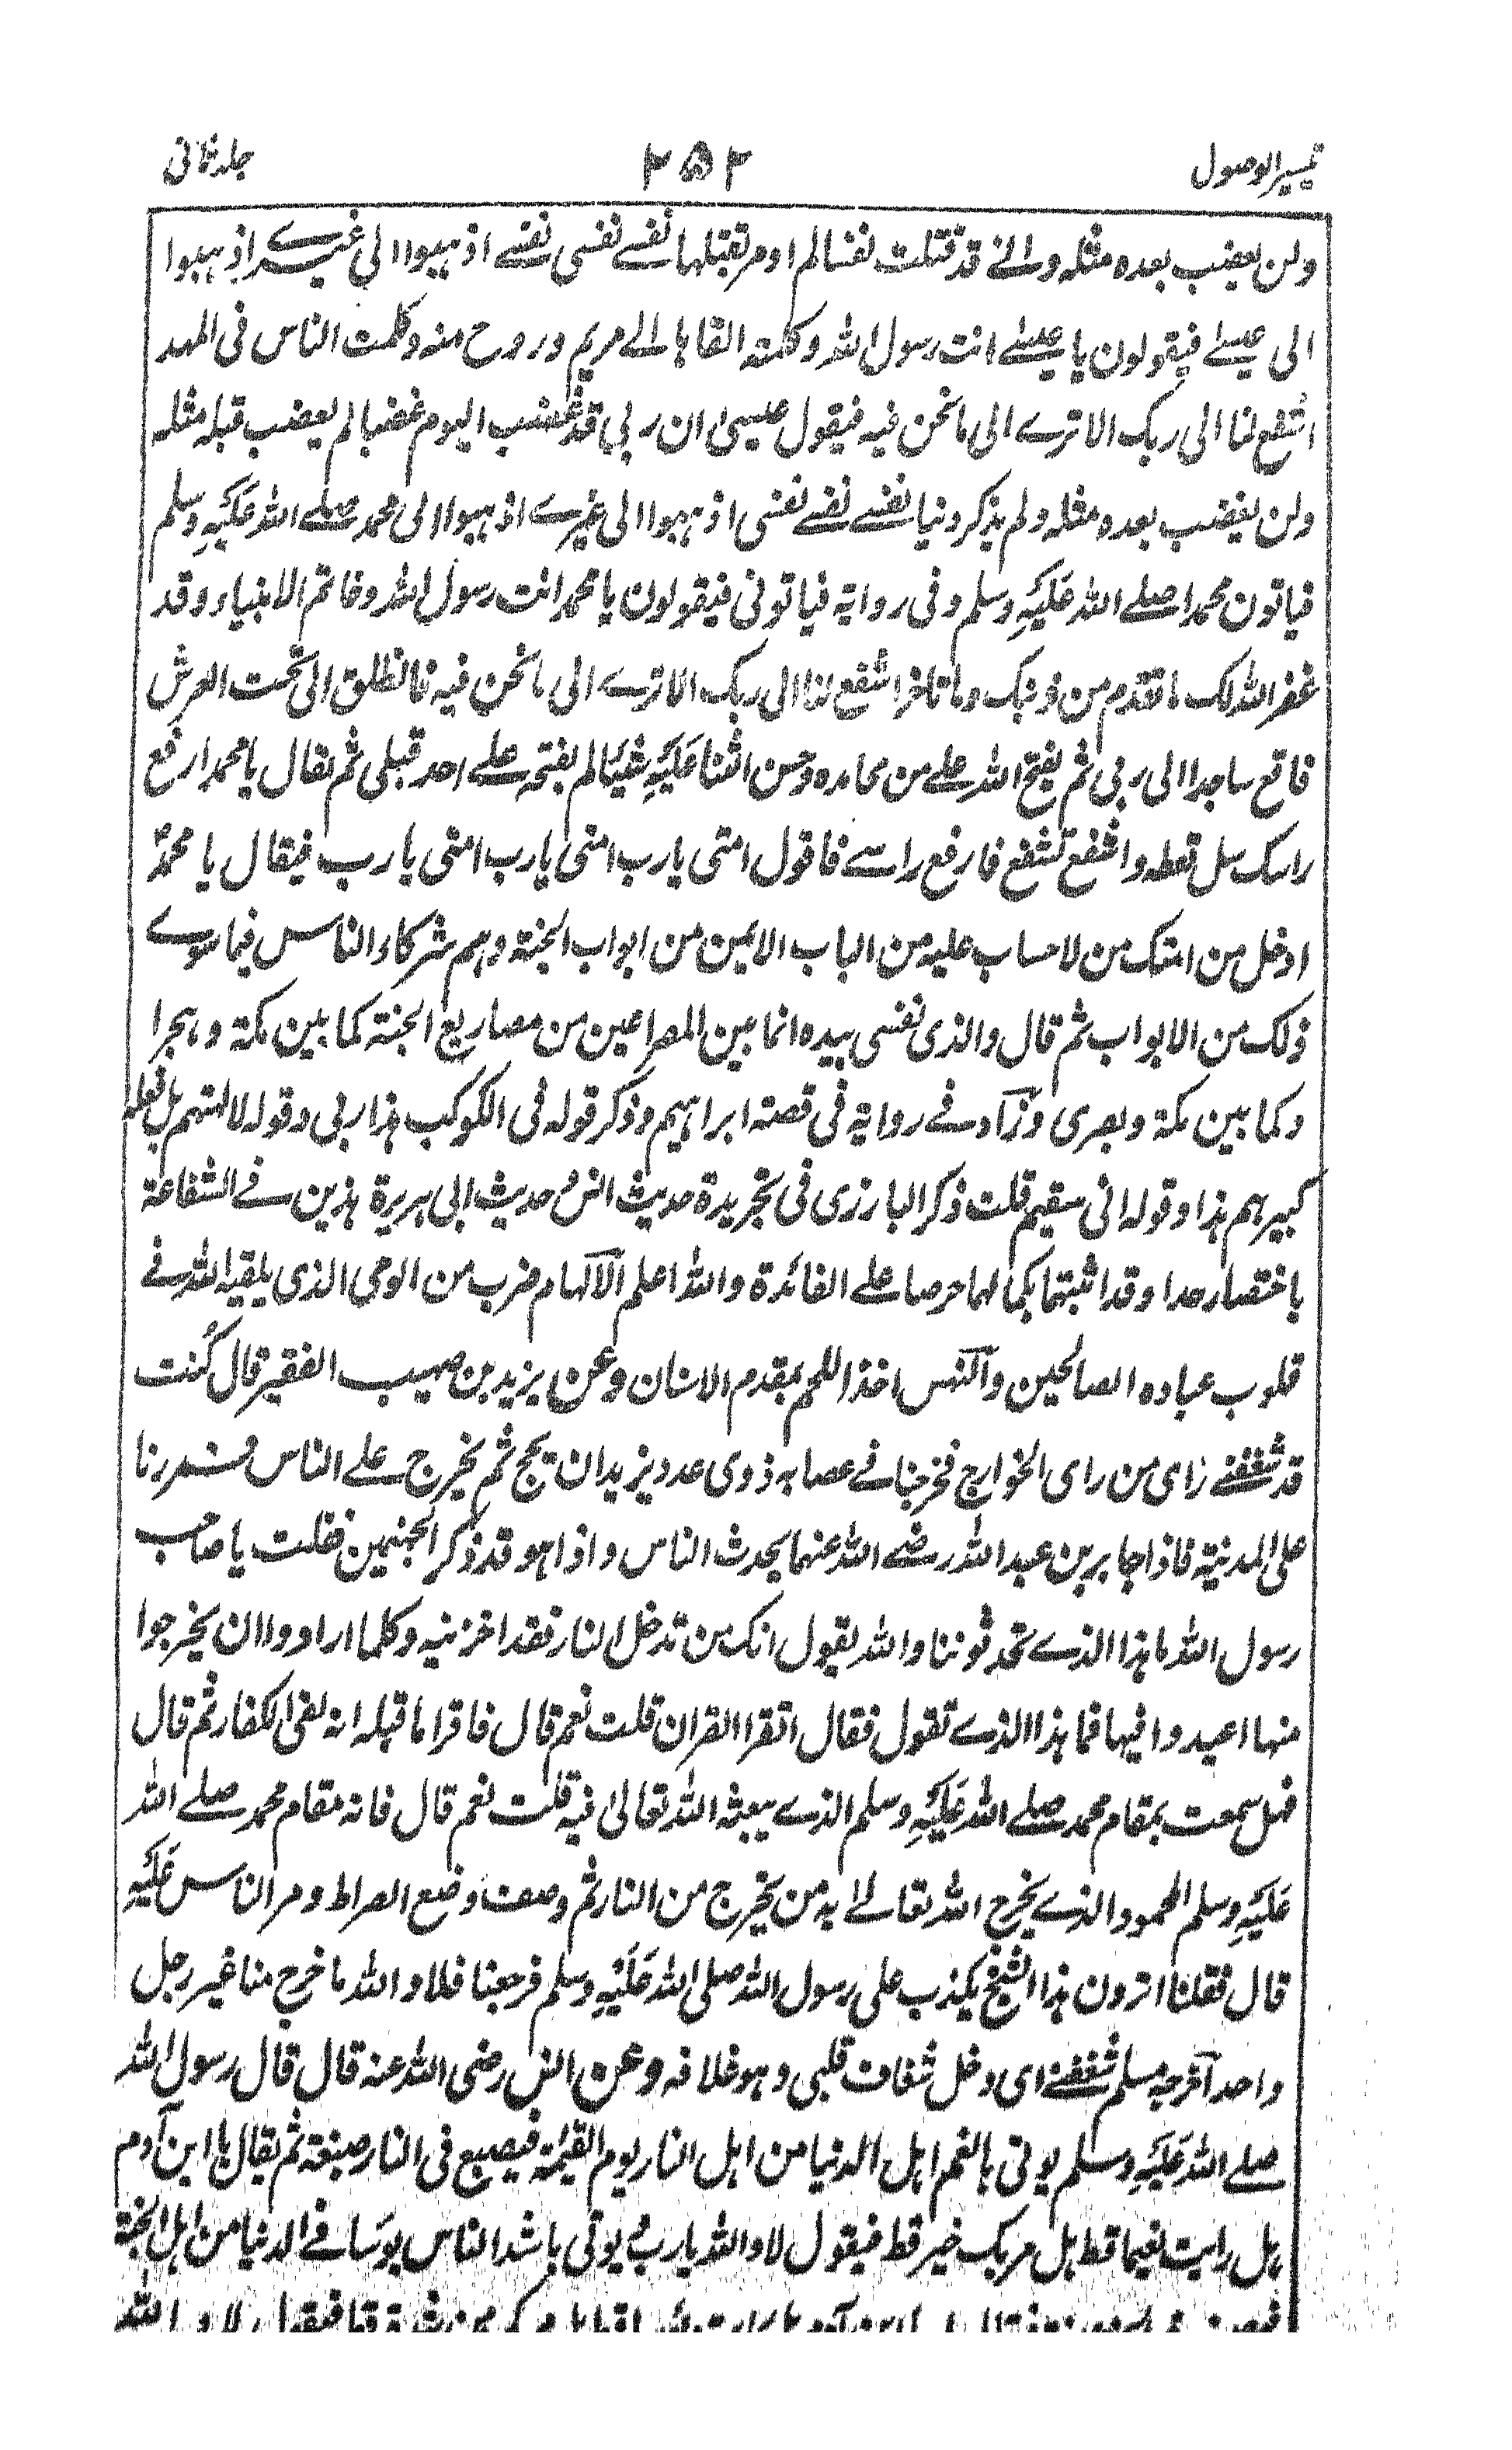 تيسير الوصول ٢٥٢ جلد ثانی
ولن يغضب بعده مثله واني قد قتلت نفسا لم اومر بقتلها نفسي نفسي نفسي اذهبوا الى غيري اذهبوا
الى عيسى فيقولون يا عيسى انت رسول الله وكلمته القاها الى مريم وروح منه وكلمت الناس فى المهد
اشفع لنا الى ربك الا ترى الى ما نحن فيه فيقول عيسى ان ربي قد غضب اليوم غضبا لم يغضب قبله مثله
ولن يغضب بعده مثله ولم يذكر ذنبا نفسي نفسي نفسي اذهبوا الى غيري اذهبوا الى محمد صلى الله عَلَيْهِ وسلم
فياتون محمدا صلى الله عَلَيْهِ وسلم وفى رواية فياتونى فيقولون يا محمد انت رسول الله وخاتم الانبياء وقد
غفر الله لك ما تقدم من ذنبك وما تاخر اشفع لنا الى ربك الا ترى الى ما نحن فيه فانطلق الى تحت العرش
فاقع ساجدا الى ربى ثم يفتح الله على من محامده وحسن الثنا عَلَيْهِ شيئا لم يفتحه على احد قبلى ثم يقال يا محمد ارفع
راسك سل تعطه واشفع تشفع فارفع راسى فاقول امتى يارب امتى يارب امتى يارب فيقال يا محمد
ادخل من امتك من لا حساب عليه من الباب الايمن من ابواب الجنة وهم شركاء الناس فيما سوى
ذلك من الابواب ثم قال والذى نفسى بيده انما بين المصراعين من مصاريع الجنة كما بين مكة وهجرا
وكما بين مكة وبصرى وزاد فى رواية فى قصة ابراهيم وذكر قوله فى الكوكب هذا ربى وقوله لالهتهم بل فعله
كبيرهم هذا وقوله انى سقيم قلت ذكر البارزى فى تجريده حديث انس وحديث ابى هريرة هذين فى الشفاعة
باختصار جدا وقد اثبتهما بكمالهما حرصا على الفائدة والله اعلم الآلهام ضرب من الوحى الذى يلقيه الله فى
قلوب عباده الصالحين والنهس اخذ اللحم بمقدم الاسنان وعن يزيد بن صهيب الفقير قال كُنت
قد شغفنى راى من راى الخوارج فخرجنا فى عصابة ذوى عدد نريد ان نحج ثم نخرج على الناس فمررنا
على المدينة فاذا جابر بن عبد الله رضى الله عنهما يحدث الناس واذا هو قد ذكر الجهنميين فقلت يا صاحب
رسول الله ما هذا الذى تحدثوننا والله يقول انك من تدخل النار فقد اخزيته وكلما ارادوا ان يخرجوا
منها اعيدوا فيها فما هذا الذى تقول فقال اتقرا القران قلت نعم قال فاقرا ما قبله انه لفى الكفار ثم قال
فهل سمعت بمقام محمد صلى الله عَلَيْهِ وسلم الذى يبعثه الله تعالى فيه قلت نعم قال فانه مقام محمد صلى الله
عَلَيْهِ وسلم المحمود الذى يخرج الله تعالى به من يخرج من النار ثم وصف وضع الصراط ومر الناس عَلَيْهِ
قال فقلنا اترون هذا الشيخ يكذب على رسول الله صلى الله عَلَيْهِ وسلم فرجعنا فلا والله ما خرج منا غير رجل
واحد اخرجه مسلم شغفنى اى دخل شغاف قلبى وهو غلافه وعن انس رضى الله عنه قال قال رسول الله
صلى الله عَلَيْهِ وسلم يوتى بانعم اهل الدنيا من اهل النار يوم القيمة فيصبغ فى النار صبغة ثم يقال يا ابن آدم
هل رايت نعيما قط هل مر بك خير قط فيقول لا والله يارب ويوتى باشد الناس بوسا فى الدنيا من اهل الجنة